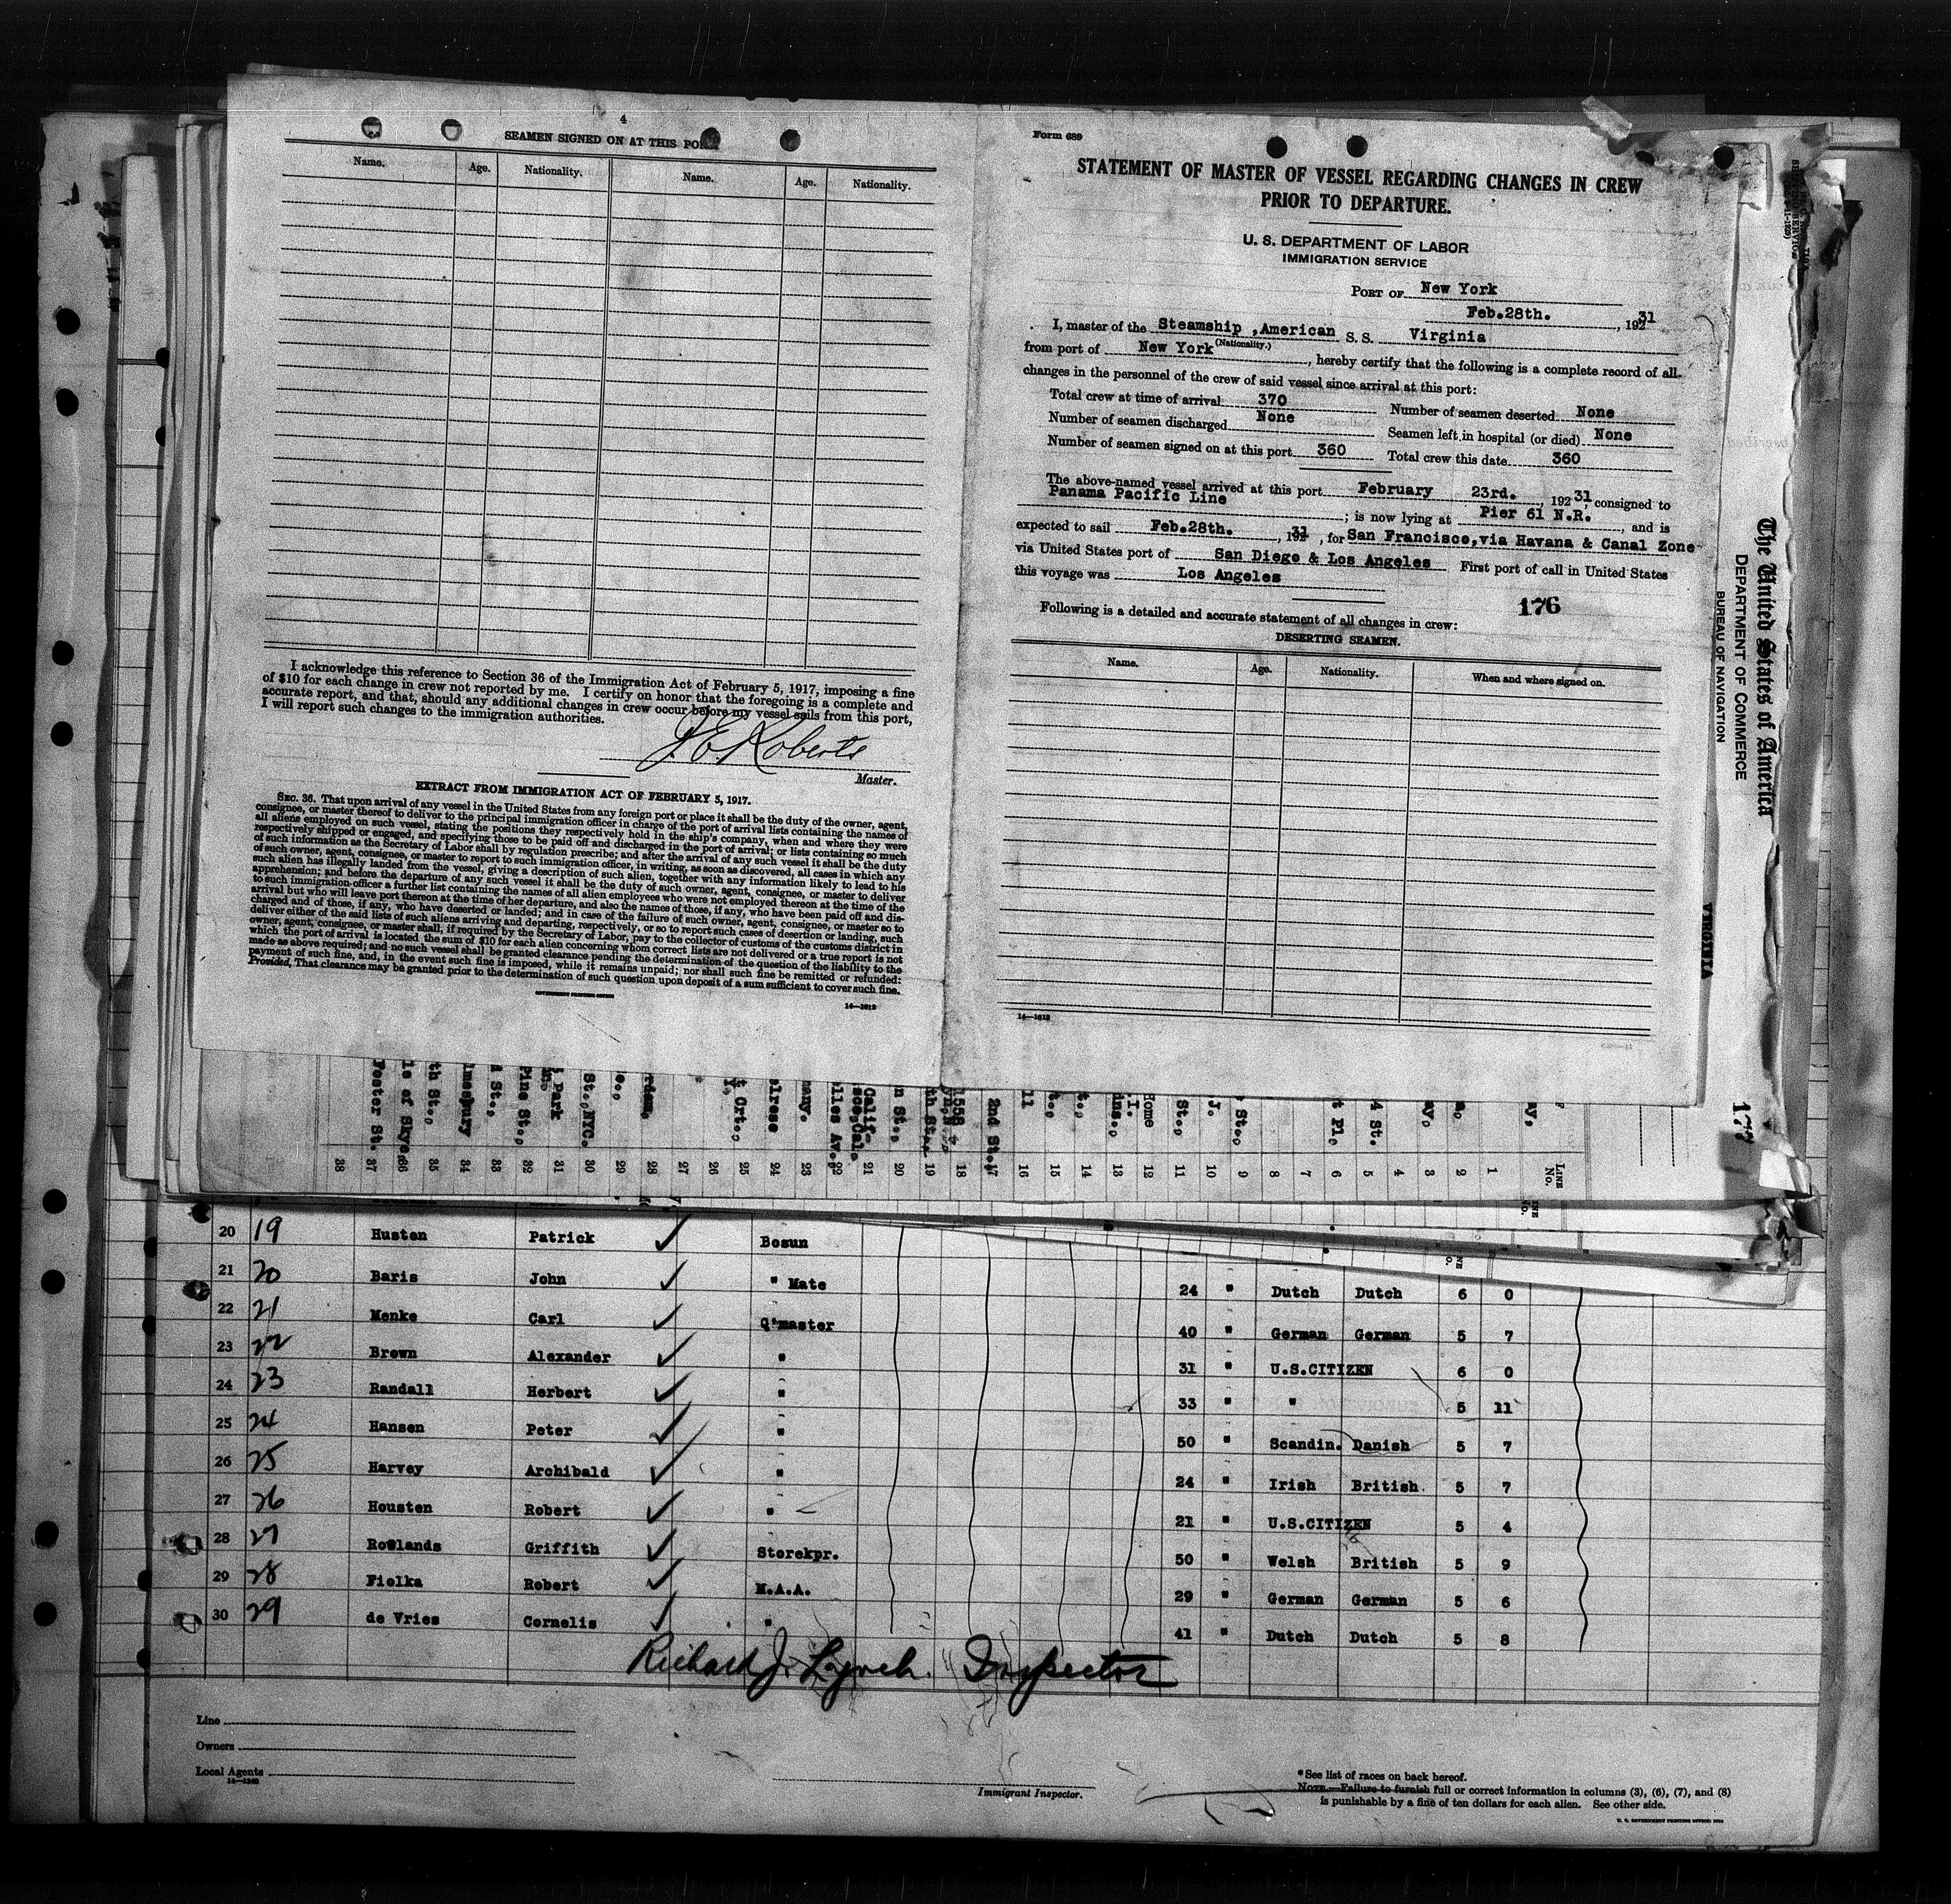 4
SEAMEN SIGNED ON AT THIS
Name. Age. Nationality. Name. Age. Nationality.
I acknowledge this reference to Section 36 of the Immigration Act of February 5, 1917, imposing a fine
of $10 for each change in crew not reported by me. I certify on honor that the foregoing is a complete and
accurate report, and that, should any additional changes in crew occur before my vessel sails from this port,
I will report such changes to the immigration authorities.
J. E. Roberts
Master.
EXTRACT FROM IMMIGRATION ACT OF FEBRUARY 5, 1917.
SEC. 36. That upon arrival of any vessel in the United States from any foreign port or place it shall be the duty of the owner, agent,
consignee, or master thereof to deliver to the principal immigration officer in charge of the port of arrival lists containing the names of
all aliens employed on such vessel, stating the positions they respectively hold in the ship's company, when and where they were
respectively shipped or engaged, and specifying those to be paid off and discharged in the port of arrival; or lists containing so much
of such information as the Secretary of Labor shall by regulation prescribe; and after the arrival of any such vessel it shall be the duty
of such owner, agent, consignee, or master to report to such immigration officer, in writing, as soon as discovered, all cases in which any
such alien has illegally landed from the vessel, giving a description of such alien, together with any information likely to lead to his
apprehension; and before the departure of any such vessel it shall be the duty of such owner, agent, consignee, or master to deliver
to such immigration officer a further list containing the names of all alien employees who were not employed thereon at the time of the
arrival but who will leave port thereon at the time of her departure, and also the names of those, if any, who have been paid off and dis-
charged and of those, if any, who have deserted or landed; and in case of the failure of such owner, agent, consignee, or master so to
deliver either of the said lists of such aliens arriving and departing, respectively, or so to report such cases of desertion or landing, such
owner, agent, consignee, or master shall, if required by the Secretary of Labor, pay to the collector of customs of the customs district in
which the port of arrival is located the sum of $10 for each alien concerning whom correct lists are not delivered or a true report is not
made as above required; and no such vessel shall be granted clearance pending the determination of the question of the liability to the
payment of such fine, and, in the event such fine is imposed, while it remains unpaid; nor shall such fine be remitted or refunded:
Provided, That clearance may be granted prior to the determination of such question upon deposit of a sum sufficient to cover such fine.
GOVERNMENT PRINTING OFFICE
14—1613
Form 689
STATEMENT OF MASTER OF VESSEL REGARDING CHANGES IN CREW
PRIOR TO DEPARTURE.
U. S. DEPARTMENT OF LABOR
IMMIGRATION SERVICE
PORT OF New York
Feb.28th. , 192 31
I, master of the Steamship ,American S. S. Virginia
(Nationality.)
from port of New York , hereby certify that the following is a complete record of all
changes in the personnel of the crew of said vessel since arrival at this port:
Total crew at time of arrival 370 Number of seamen deserted None
Number of seamen discharged None Seamen left in hospital (or died) None
Number of seamen signed on at this port 360 Total crew this date 360
The above-named vessel arrived at this port February 23rd. , 192 31 consigned to
Panama Pacific Line ; is now lying at Pier 61 N.R. , and is
expected to sail Feb.28th. , 192 31 , for San Francisco,via Havana & Canal Zone
via United States port of San Diego & Los Angeles First port of call in United States
this voyage was Los Angeles
176
Following is a detailed and accurate statement of all changes in crew:
DESERTING SEAMEN.
Name. Age. Nationality. When and where signed on.
14—1613
The United States of America
DEPARTMENT OF COMMERCE
BUREAU OF NAVIGATION
VIRGINIA
177
LINE No.
1 2 3 4 5 6 7 8 9 10 11 12 13 14 15 16 17 18 19 20 21 22 23 24 25 26 27 28 29 30 31 32 33 34 35 36 37 38
20 19 Huston Patrick Bosun
21 20 Baris John " Mate 24 " Dutch Dutch 6 0
22 21 Menke Carl Q'master 40 " German German 5 7
23 22 Brown Alexander " 31 " U.S.CITIZEN 6 0
24 23 Randall Herbert " 33 " " 5 11
25 24 Hansen Peter " 50 " Scandin. Danish 5 7
26 25 Harvey Archibald " 24 " Irish British 5 7
27 26 Housten Robert " 21 " U.S.CITIZEN 5 4
28 27 Rowlands Griffith Storekpr. 50 " Welsh British 5 9
29 28 Fielka Robert M.A.A. 29 " German German 5 6
30 29 de Vries Cornelis " 41 " Dutch Dutch 5 8
Richard J. Lynch. Inspector
Line
Owners
Local Agents
Immigrant Inspector.
*See list of races on back hereof.
NOTE.—Failure to furnish full or correct information in columns (3), (6), (7), and (8)
is punishable by a fine of ten dollars for each alien. See other side.